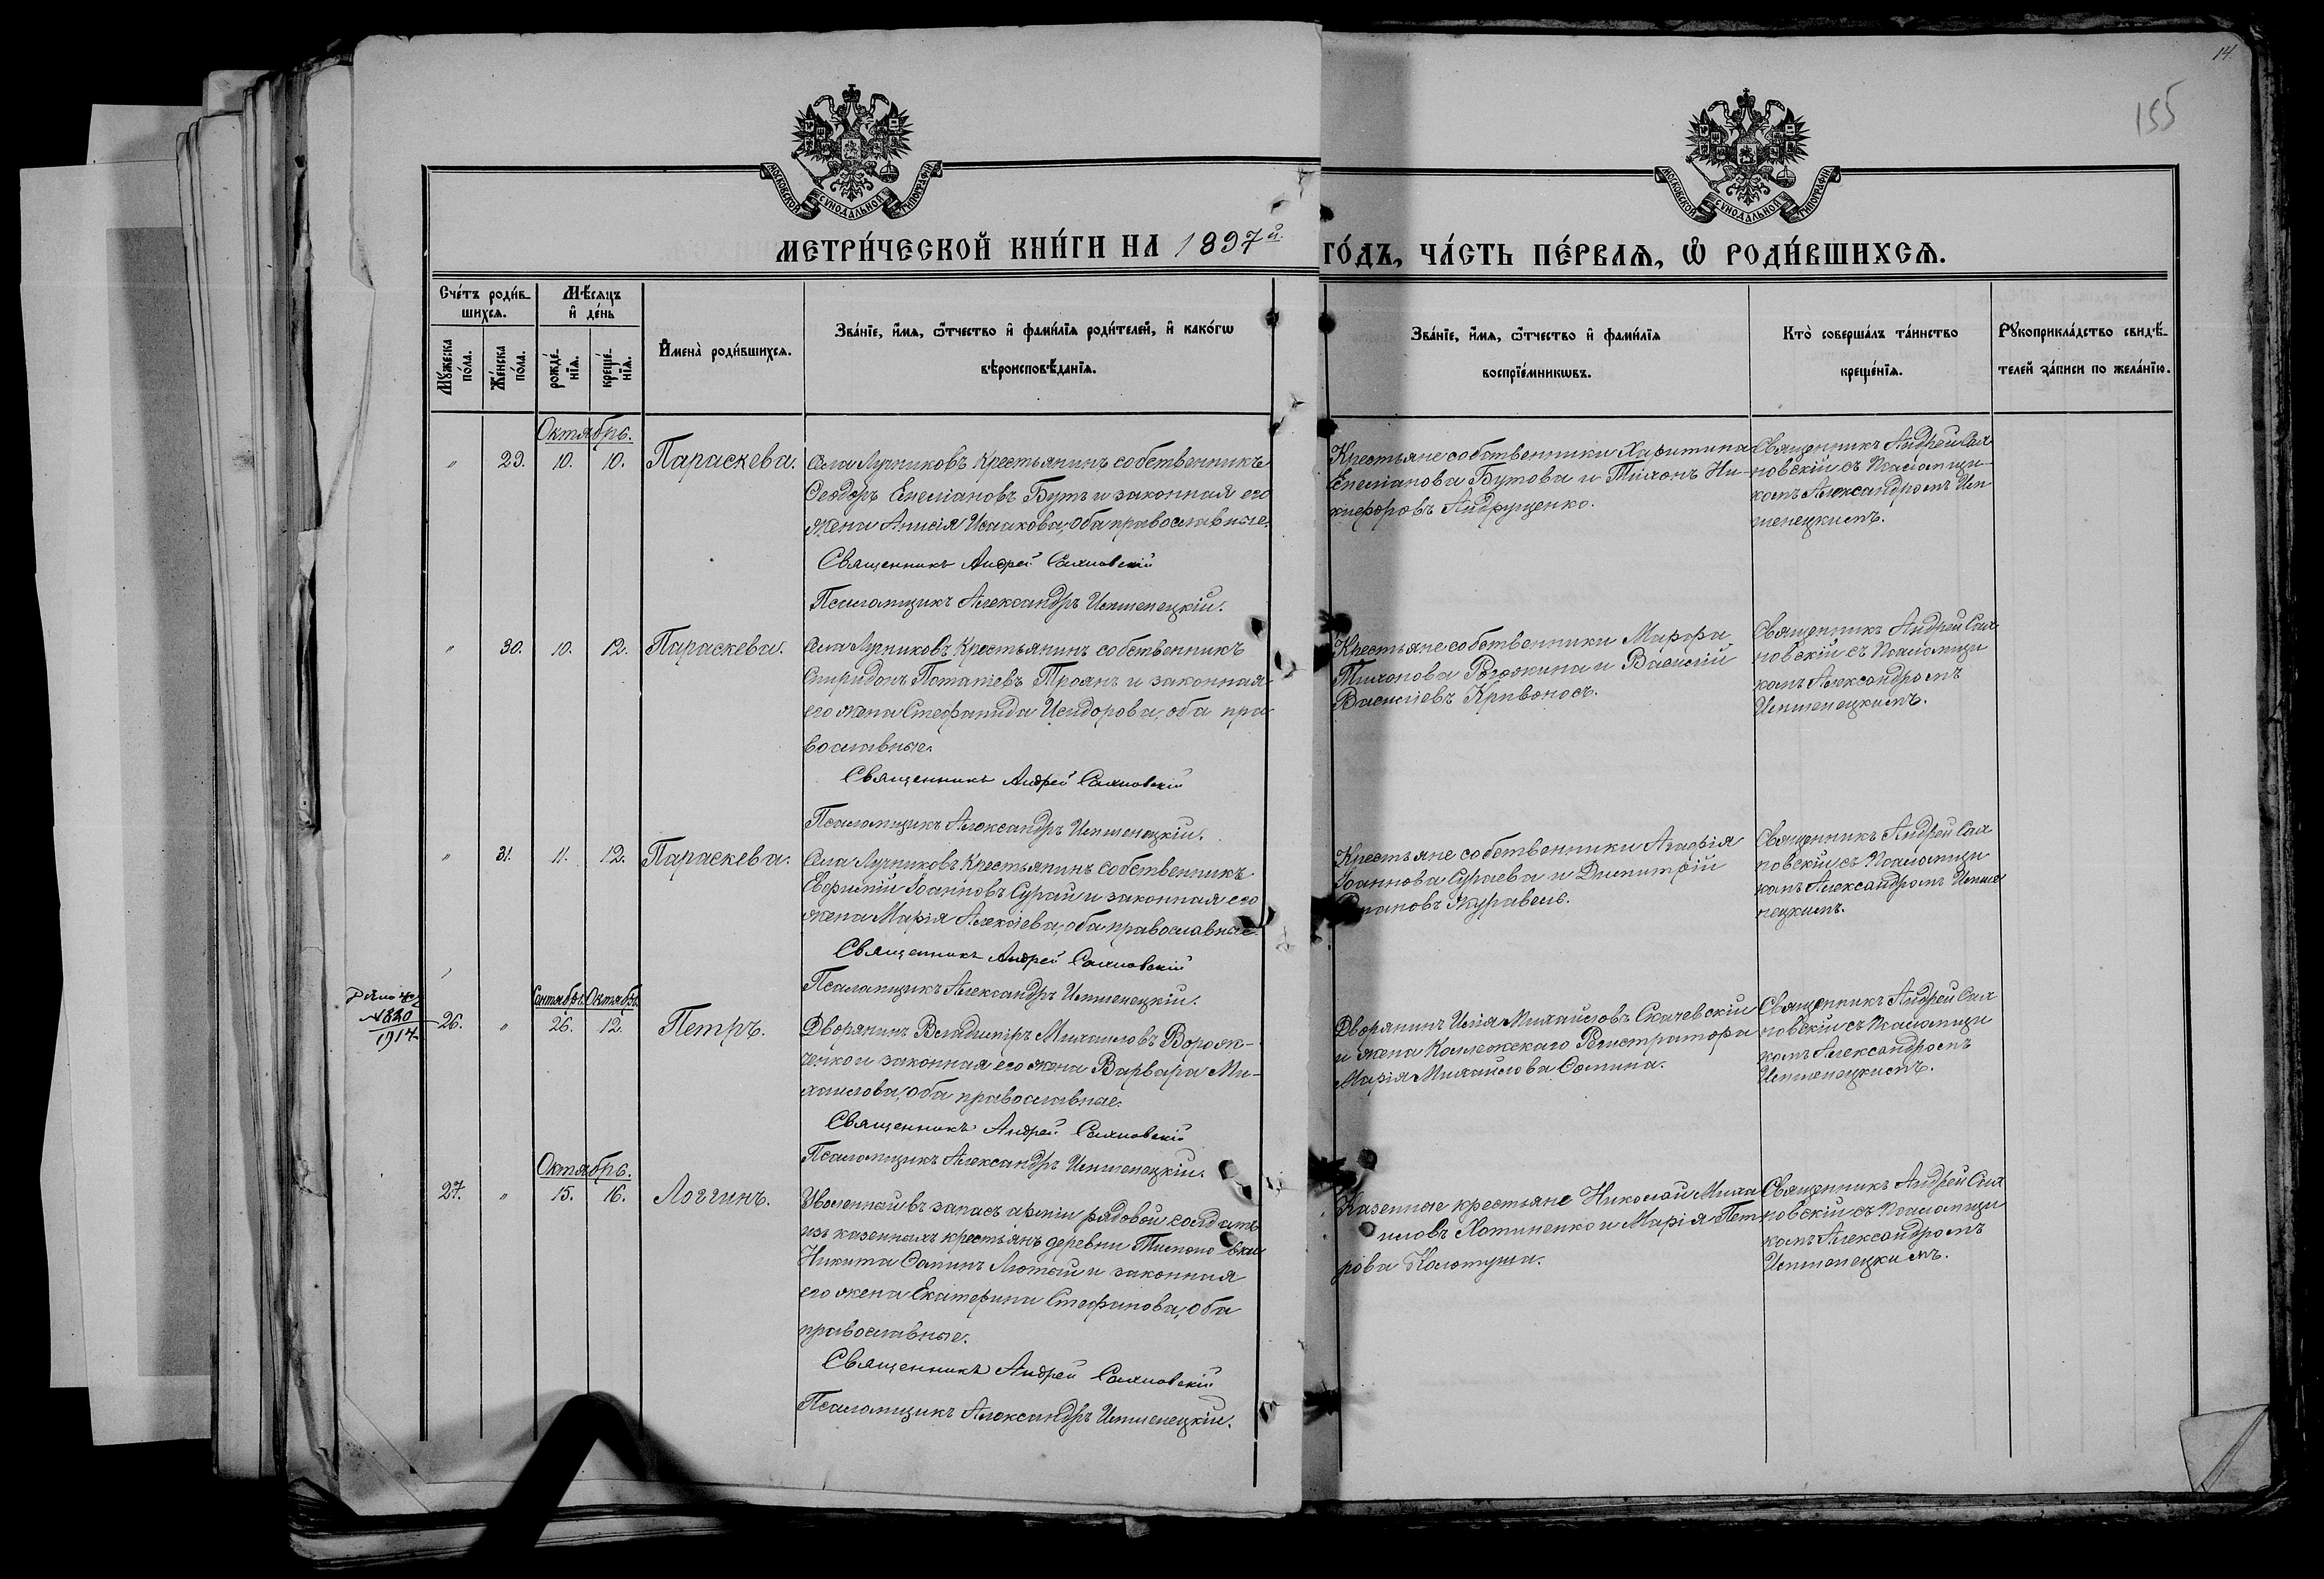 14.
155
МОСКОВСКОЙ СѴНОДАЛЬНОЙ ТИПОГРАФІИ
МОСКОВСКОЙ СѴНОДАЛЬНОЙ ТИПОГРАФІИ
МЕТРИ́ЧЕСКОЙ КНИ́ГИ НА 1897й. ГО́ДЪ, ЧА́СТЬ ПЕ́РВАѦ, Ѡ РОДИ́ВШИХСѦ.
Сче́тъ роди́в-
шихсѧ.
Мꙋ́жеска по́ла.
Же́нска по́ла.
Мѣ́сѧцъ
и҆ де́нь
рожде́-
нїѧ.
креще́-
нїѧ.
И҆мена̀ роди́вшихсѧ.
Зва́нїе, и҆́мѧ, ѻ҆́тчество и҆ фами́лїѧ роди́телей, и҆ како́гѡ
вѣроисповѣ́данїѧ.
Зва́нїе, и҆́мѧ, ѻ҆́тчество и҆ фами́лїѧ
воспрїе́мникѡвъ.
Кто̀ соверша́лъ та́инство
креще́нїѧ.
Рꙋкоприкла́дство свидѣ́-
телей за́писи по жела́нїю.
Октябрь.
" 29. 10. 10. Параскева.
Села Лучниковъ крестьянинъ собственникъ
Ѳеодоръ Емеліановъ Бутъ и законная его
жена Анисія Исаакова, оба православные.
Священникъ Андрей Сахновскій
Псаломщикъ Александръ Имшенецкій.
Крестьяне собственники Харитина
Емеліанова Бутова и Тихонъ Ни-
кифоровъ Андрущенко.
Священникъ Андрей Сах
новскій съ Псаломщи
комъ Александромъ Им
шенецкимъ.
" 30. 10. 12. Параскева.
Села Лучниковъ крестьянинъ собственникъ
Спиридонъ Потапіевъ Троянъ и законная
его жена Стефанида Исидорова, оба пра
вославные.
Священникъ Андрей Сахновскій
Псаломщикъ Александръ Имшенецкій.
Крестьяне собственники Марфа
Тихонова Рогожина и Василій
Василіевъ Кривоносъ.
Священникъ Андрей Сах
новскій съ Псаломщи
комъ Александромъ
Имшенецкимъ.
" 31. 11. 12. Параскева.
Села Лучниковъ крестьянинъ собственникъ
Евфимій Іоанновъ Сурай и законная его
жена Марія Алексіева, оба православные.
Священникъ Андрей Сахновскій
Псаломщикъ Александръ Имшенецкій.
Крестьяне собственники Агафія
Іоаннова Сураева и Димитрій
Романовъ Журавель.
Священникъ Андрей Сах
новскій съ Псаломщи
комъ Александромъ Имше
нецкимъ.
1914
Сентябрь. Октябрь.
26. " 26. 12. Петръ.
Дворянинъ Владиміръ Михаиловъ Ворож-
ченко и законная его жена Варвара Ми-
хаилова, оба православные.
Священникъ Андрей Сахновскій
Псаломщикъ Александръ Имшенецкій.
Дворянинъ Илія Михаиловъ Скачевскій
и жена Коллежскаго Регистратора
Марія Михаилова Сомина.
Священникъ Андрей Сах
новскій съ Псаломщи
комъ Александромъ
Имшенецкимъ.
Октябрь.
27. " 15. 16. Логгинъ.
Уволенный въ запасъ арміи рядовой солдатъ
изъ казенныхъ крестьянъ деревни
Никита Лютый и законная
его жена Екатерина Стефанова, оба
православные.
Священникъ Андрей Сахновскій
Псаломщикъ Александръ Имшенецкій.
Казенные крестьяне Николай Миха
иловъ Хотиненко и Марія Пет-
рова Колотуша.
Священникъ Андрей Сах
новскій съ Псаломщи
комъ Александромъ
Имшенецкимъ.